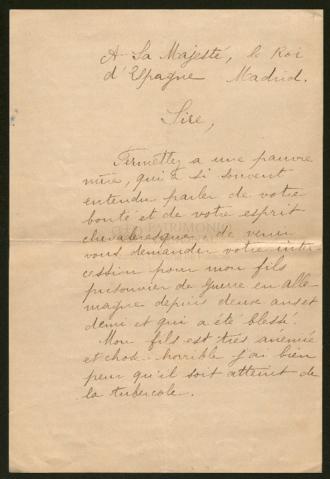 A Sa Majesté, le Roi
d'Espagne Madrid.
Sire,
Permettez a une pauvre
mère, qui a si souvent
entendu parler de votre
bonté et de votre esprit
chevaleresque, de venir
vous demander votre inter
cession pour mon fils
prisonnier de guerre en alle
magne depuis deux ans et
demi et qui a été blessé.
Mon fils est très anémié
et chose horrible j'ai bien
peur qu'il soit atteint de
la tubercole.